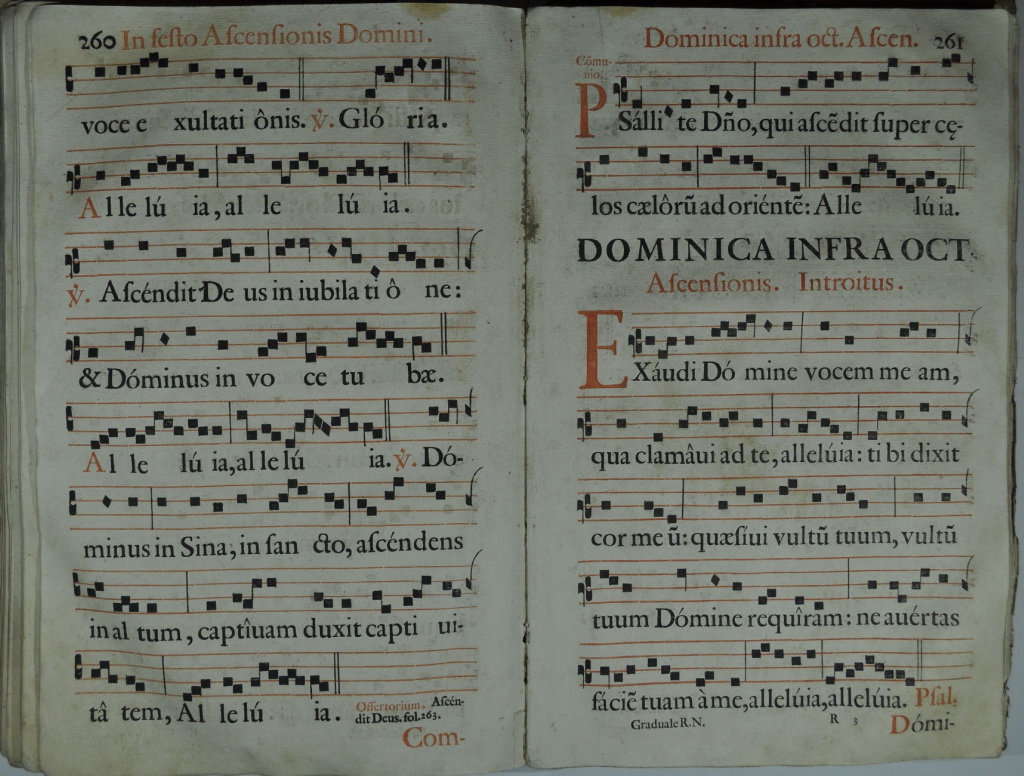 260 In feſto Aſcenſionis Domini.
voce e xultati ônis. ℣. Gló ria.
Al le lú ia, al le lú ia.
℣. Aſcéndit De us in iubila ti ô ne:
& Dóminus in vo ce tu bæ.
Al le lú ia, al le lú ia. ℣. Dó-
minus in Sina, in ſan cto, aſcéndens
in al tum, captîuam duxit capti ui-
tâ tem, Al le lú ia. Offertorium. Aſcén-
dit Deus. fol. 263.
Com-
Dominica infra oct. Aſcen. 261
Cõmu-
nio.
PSálli te Dño, qui aſcẽdit ſuper cę-
los cælôrũ ad oriéntẽ: Alle lú ia.
DOMINICA INFRA OCT.
Aſcenſionis. Introitus.
EXáudi Dó mine vocem me am,
qua clamâui ad te, allelúia: ti bi dixit
cor me ũ: quæſiui vultũ tuum, vultũ
tuum Dómine requîram: ne auértas
fáciẽ tuam à me, allelúia, allelúia. Pſal.
Graduale R.N. R 3 Dómi-